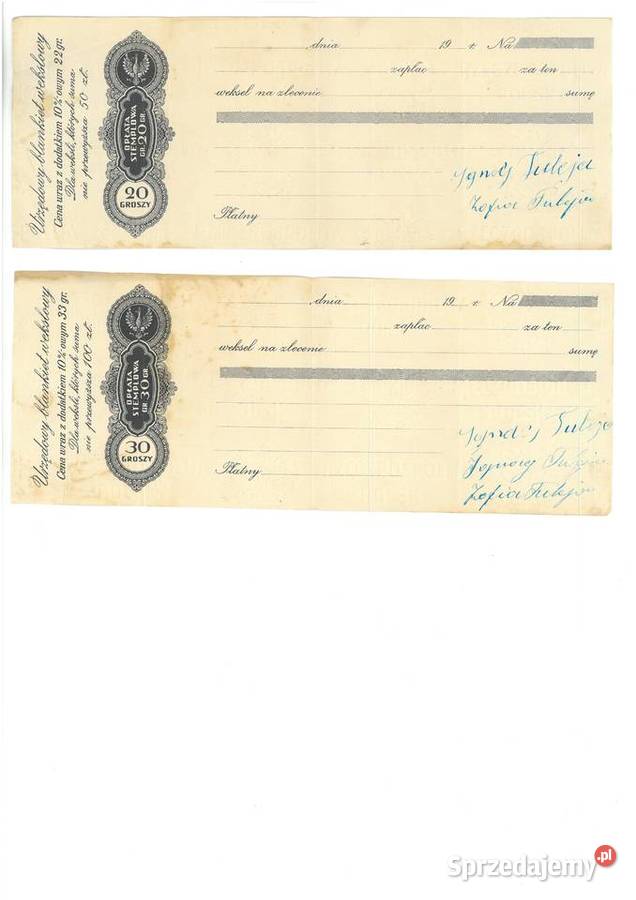 Urzędowy blankiet wekslowy
Cena wraz z dodatkiem 10%-owym 22 gr.
Dla weksli, których suma
nie przewyższa 50 zł.
OPŁATA
STEMPLOWA
GR. 20 GR.
20
GROSZY
dnia 19 r. Na
zapłac za ten
weksel na zlecenie sumę
Płatny
Ignacy Tuleja
Zofia Tuleja
Urzędowy blankiet wekslowy
Cena wraz z dodatkiem 10%-owym 33 gr.
Dla weksli, których suma
nie przewyższa 100 zł.
OPŁATA
STEMPLOWA
GR. 30 GR.
30
GROSZY
dnia 19 r. Na
zapłac za ten
weksel na zlecenie sumę
Płatny
Ignacy Tuleja
Ignacy Tuleja
Zofia Tuleja
Sprzedajemy.pl